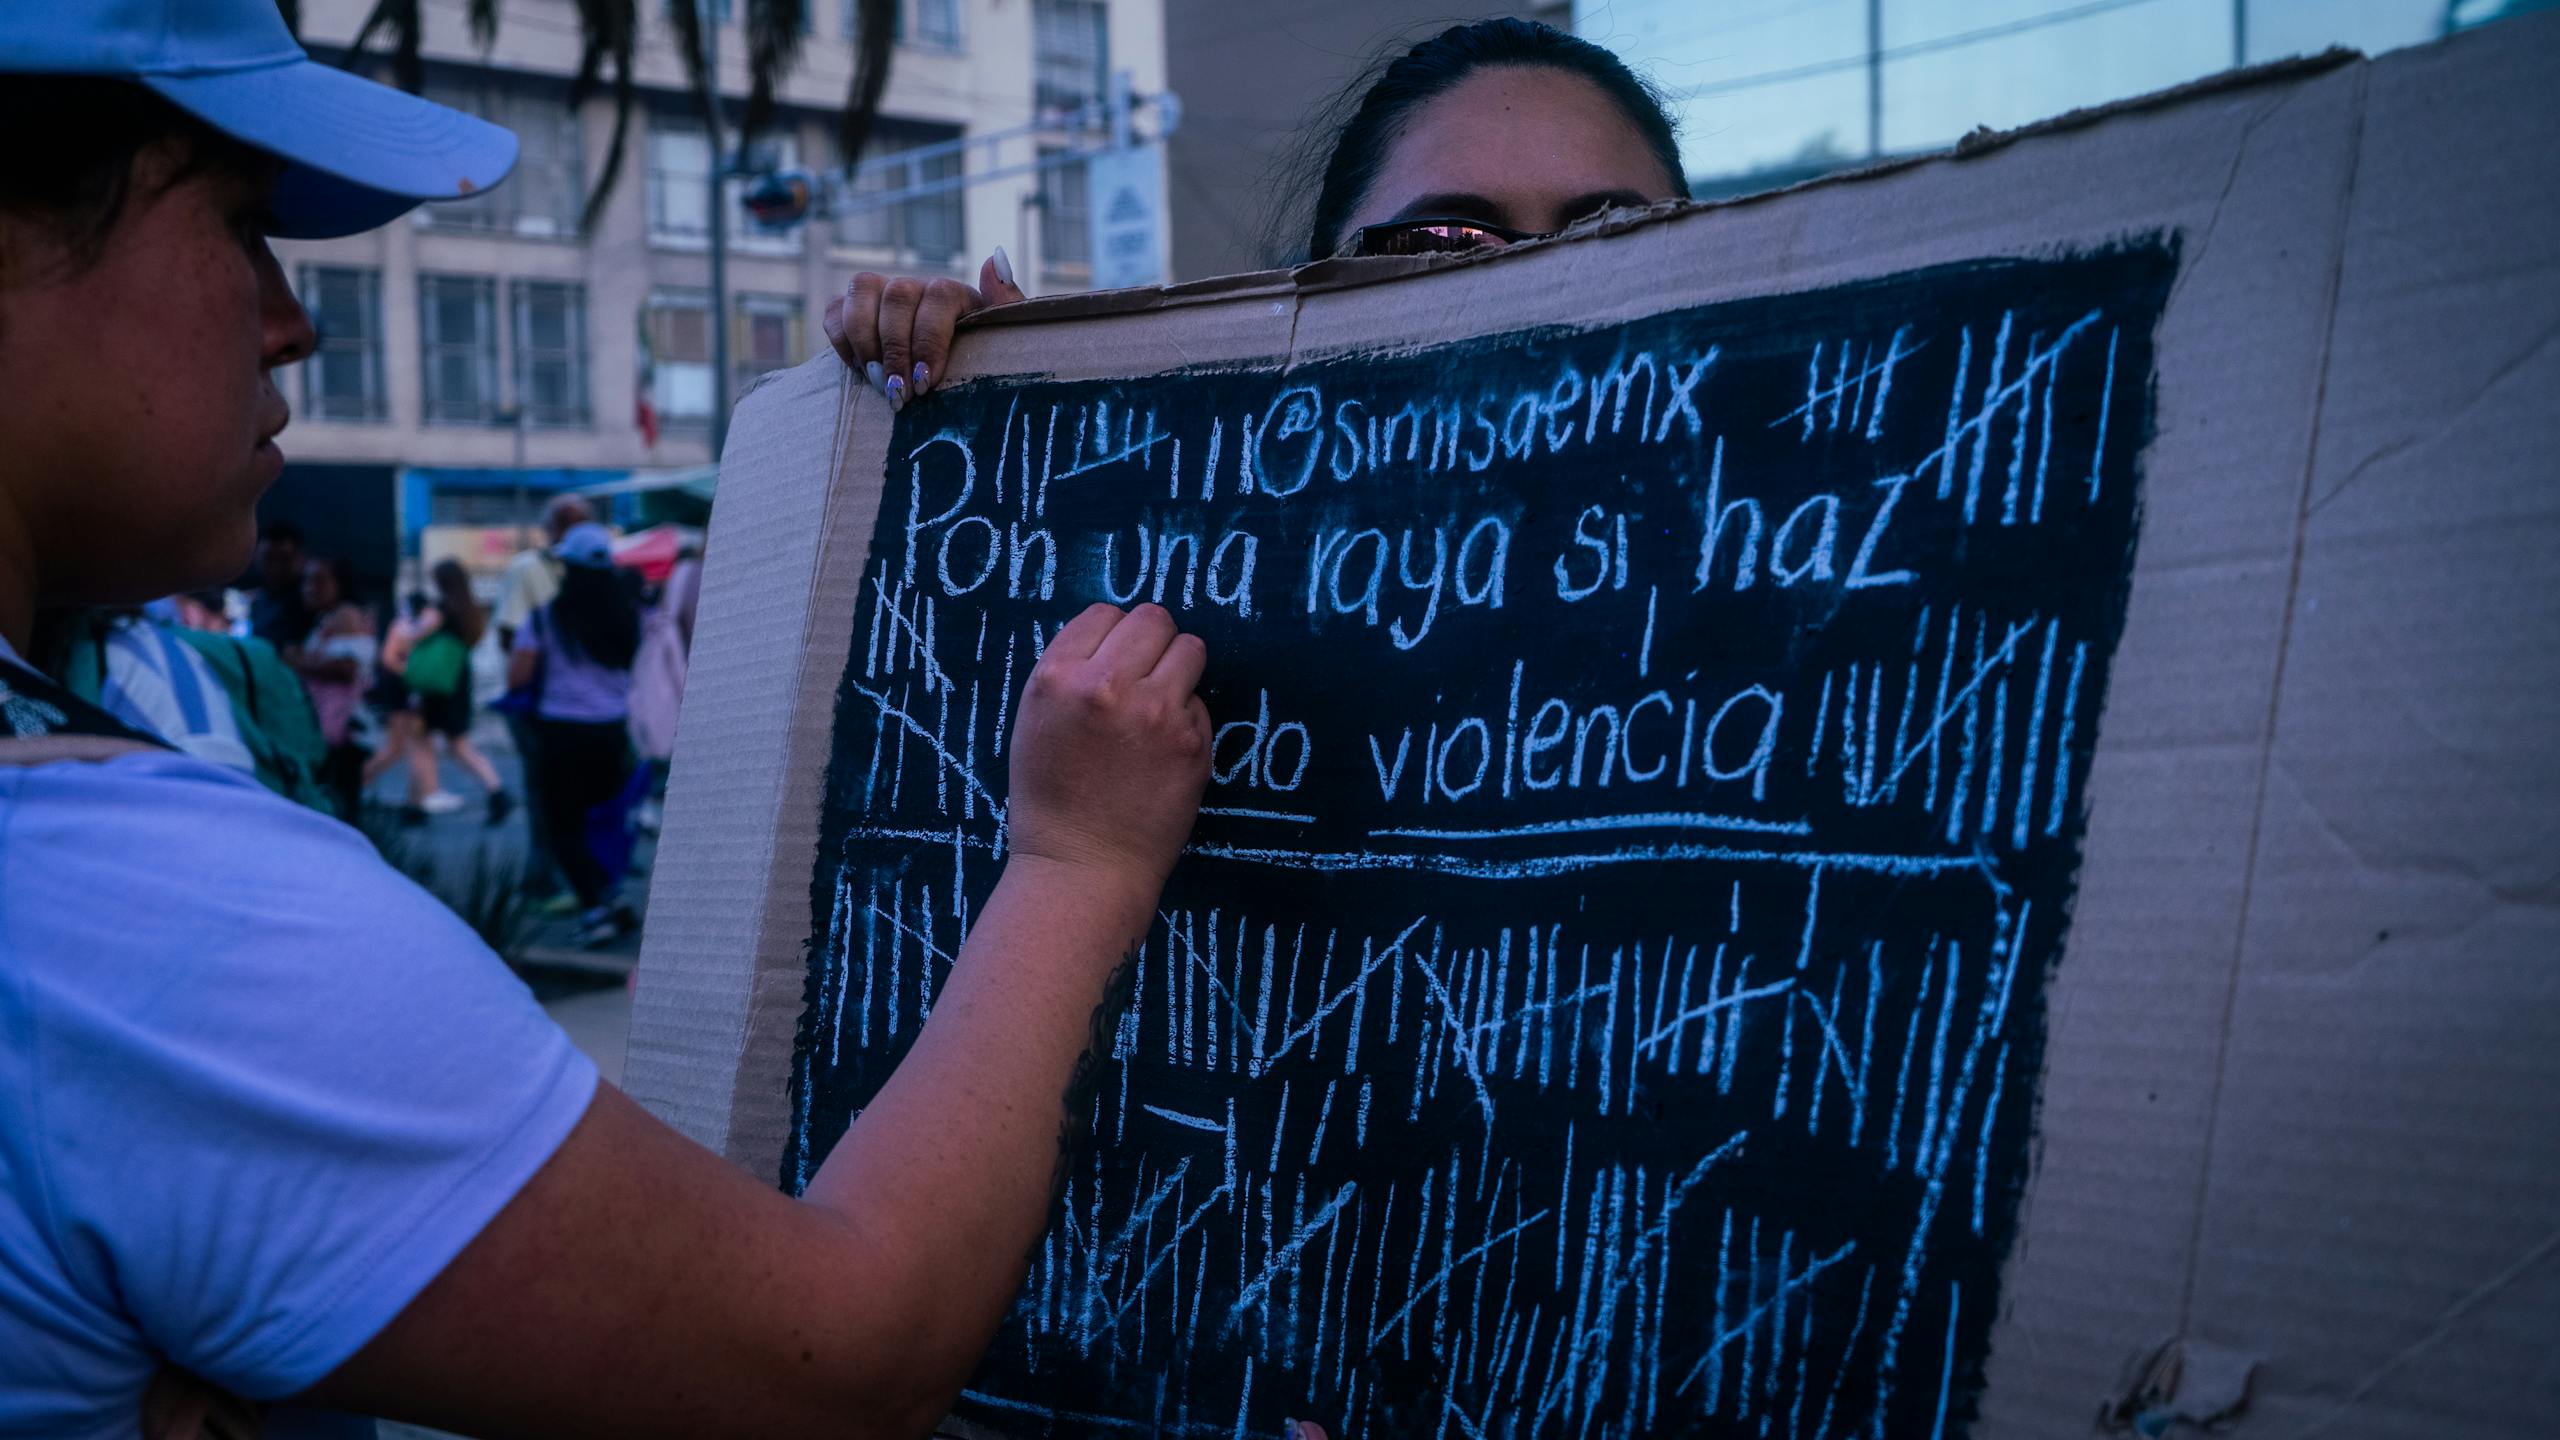 @simiisaemx
Pon una raya si haz
do violencia